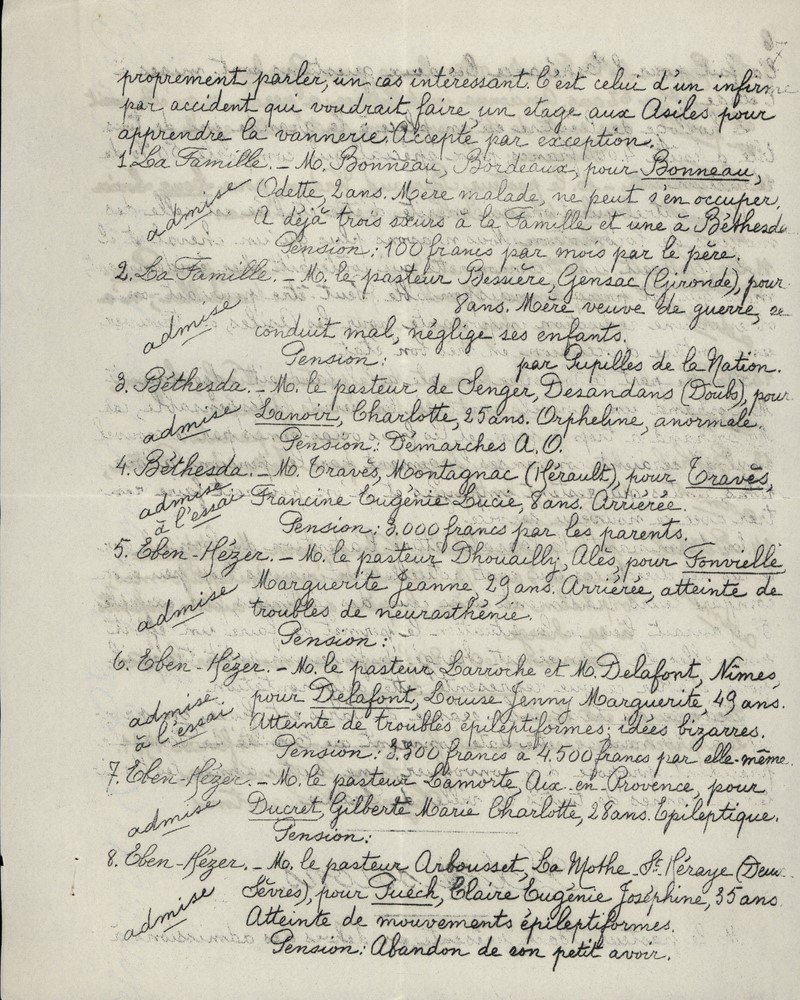 proprement parler, un cas intéressant. C'est celui d'un infirme
par accident qui voudrait faire un stage aux Asiles pour
apprendre la vannerie. Accepté par exception.
1. La Famille. - M. Bonneau, Bordeaux, pour Bonneau,
admise
Odette, 2 ans. Mère malade, ne peut s'en occuper.
A déjà trois sœurs à la Famille et une à Béthesda
Pension: 100 francs par mois par le père.
2. La Famille. - M. le pasteur Bessière, Gensac (Gironde), pour
8 ans. Mère veuve de guerre, se
admise
conduit mal, néglige ses enfants.
Pension: par Pupilles de la Nation.
3. Béthesda. - M. le pasteur de Senger, Desandans (Doubs), pour
admise
Lanoir, Charlotte, 25 ans. Orpheline, anormale.
Pension: Démarches A. O.
4. Béthesda. - M. Travès, Montagnac (Hérault), pour Travès,
admise
à l'essai
Francine Eugénie Lucie, 8 ans. Arriérée.
Pension: 3.000 francs par les parents.
5. Eben-Hézer. - M. le pasteur Dhouailly, Alès, pour Fonvielle
Marguerite Jeanne, 29 ans. Arriérée, atteinte de
admise
troubles de neurasthénie.
Pension: -
6. Eben-Hézer. - M. le pasteur Larroche et M. Delafont, Nîmes,
pour Delafont, Louise Jenny Marguerite, 49 ans.
admise
à l'essai
Atteinte de troubles épileptiformes; idées bizarres.
Pension: 3.300 francs à 4.500 francs par elle-même.
7. Eben-Hézer. - M. le pasteur Lamorte, Aix-en-Provence, pour
admise
Ducret, Gilberte Marie Charlotte, 28 ans. Epileptique.
Pension:
8. Eben-Hézer. - M. le pasteur Arbousset, La Mothe-St-Héraye (Deux-
Sèvres), pour Puech, Claire Eugénie Joséphine, 35 ans
admise
Atteinte de mouvements épileptiformes.
Pension: Abandon de son petit avoir.